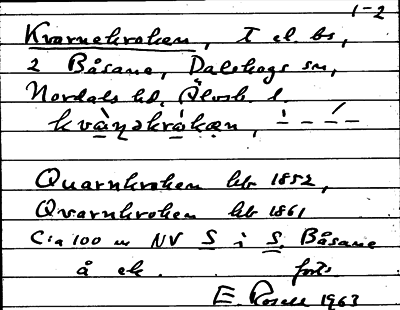 1-2
Kvarnekroken, T el. bs,
2 Båsane, Dalskogs sn,
Nordals hd, Älvsb. l.
kvànəkrákæn,
Quarnkroken hb 1852,
Qvarnkroken hb 1861
C:a 100 m NV S i S. Båsane
å ek. forts.
E. Rosell 1963